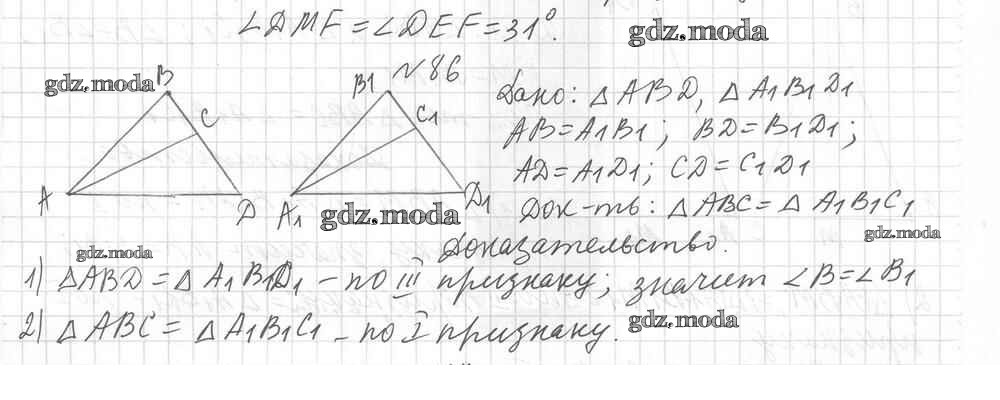 ∠DMF = ∠DEF = 31°.
gdz.moda
№86
gdz.moda
B
C
A
D
B1
C1
A1
D1
gdz.moda
Дано: △ABD, △A1B1D1
AB=A1B1; BD=B1D1;
AD=A1D1; CD=C1D1
Док-ть: △ABC=△A1B1C1
gdz.moda
Доказательство.
gdz.moda
1) △ABD=△A1B1D1 - по III признаку; значит ∠B=∠B1
2) △ABC=△A1B1C1 - по I признаку.
gdz.moda